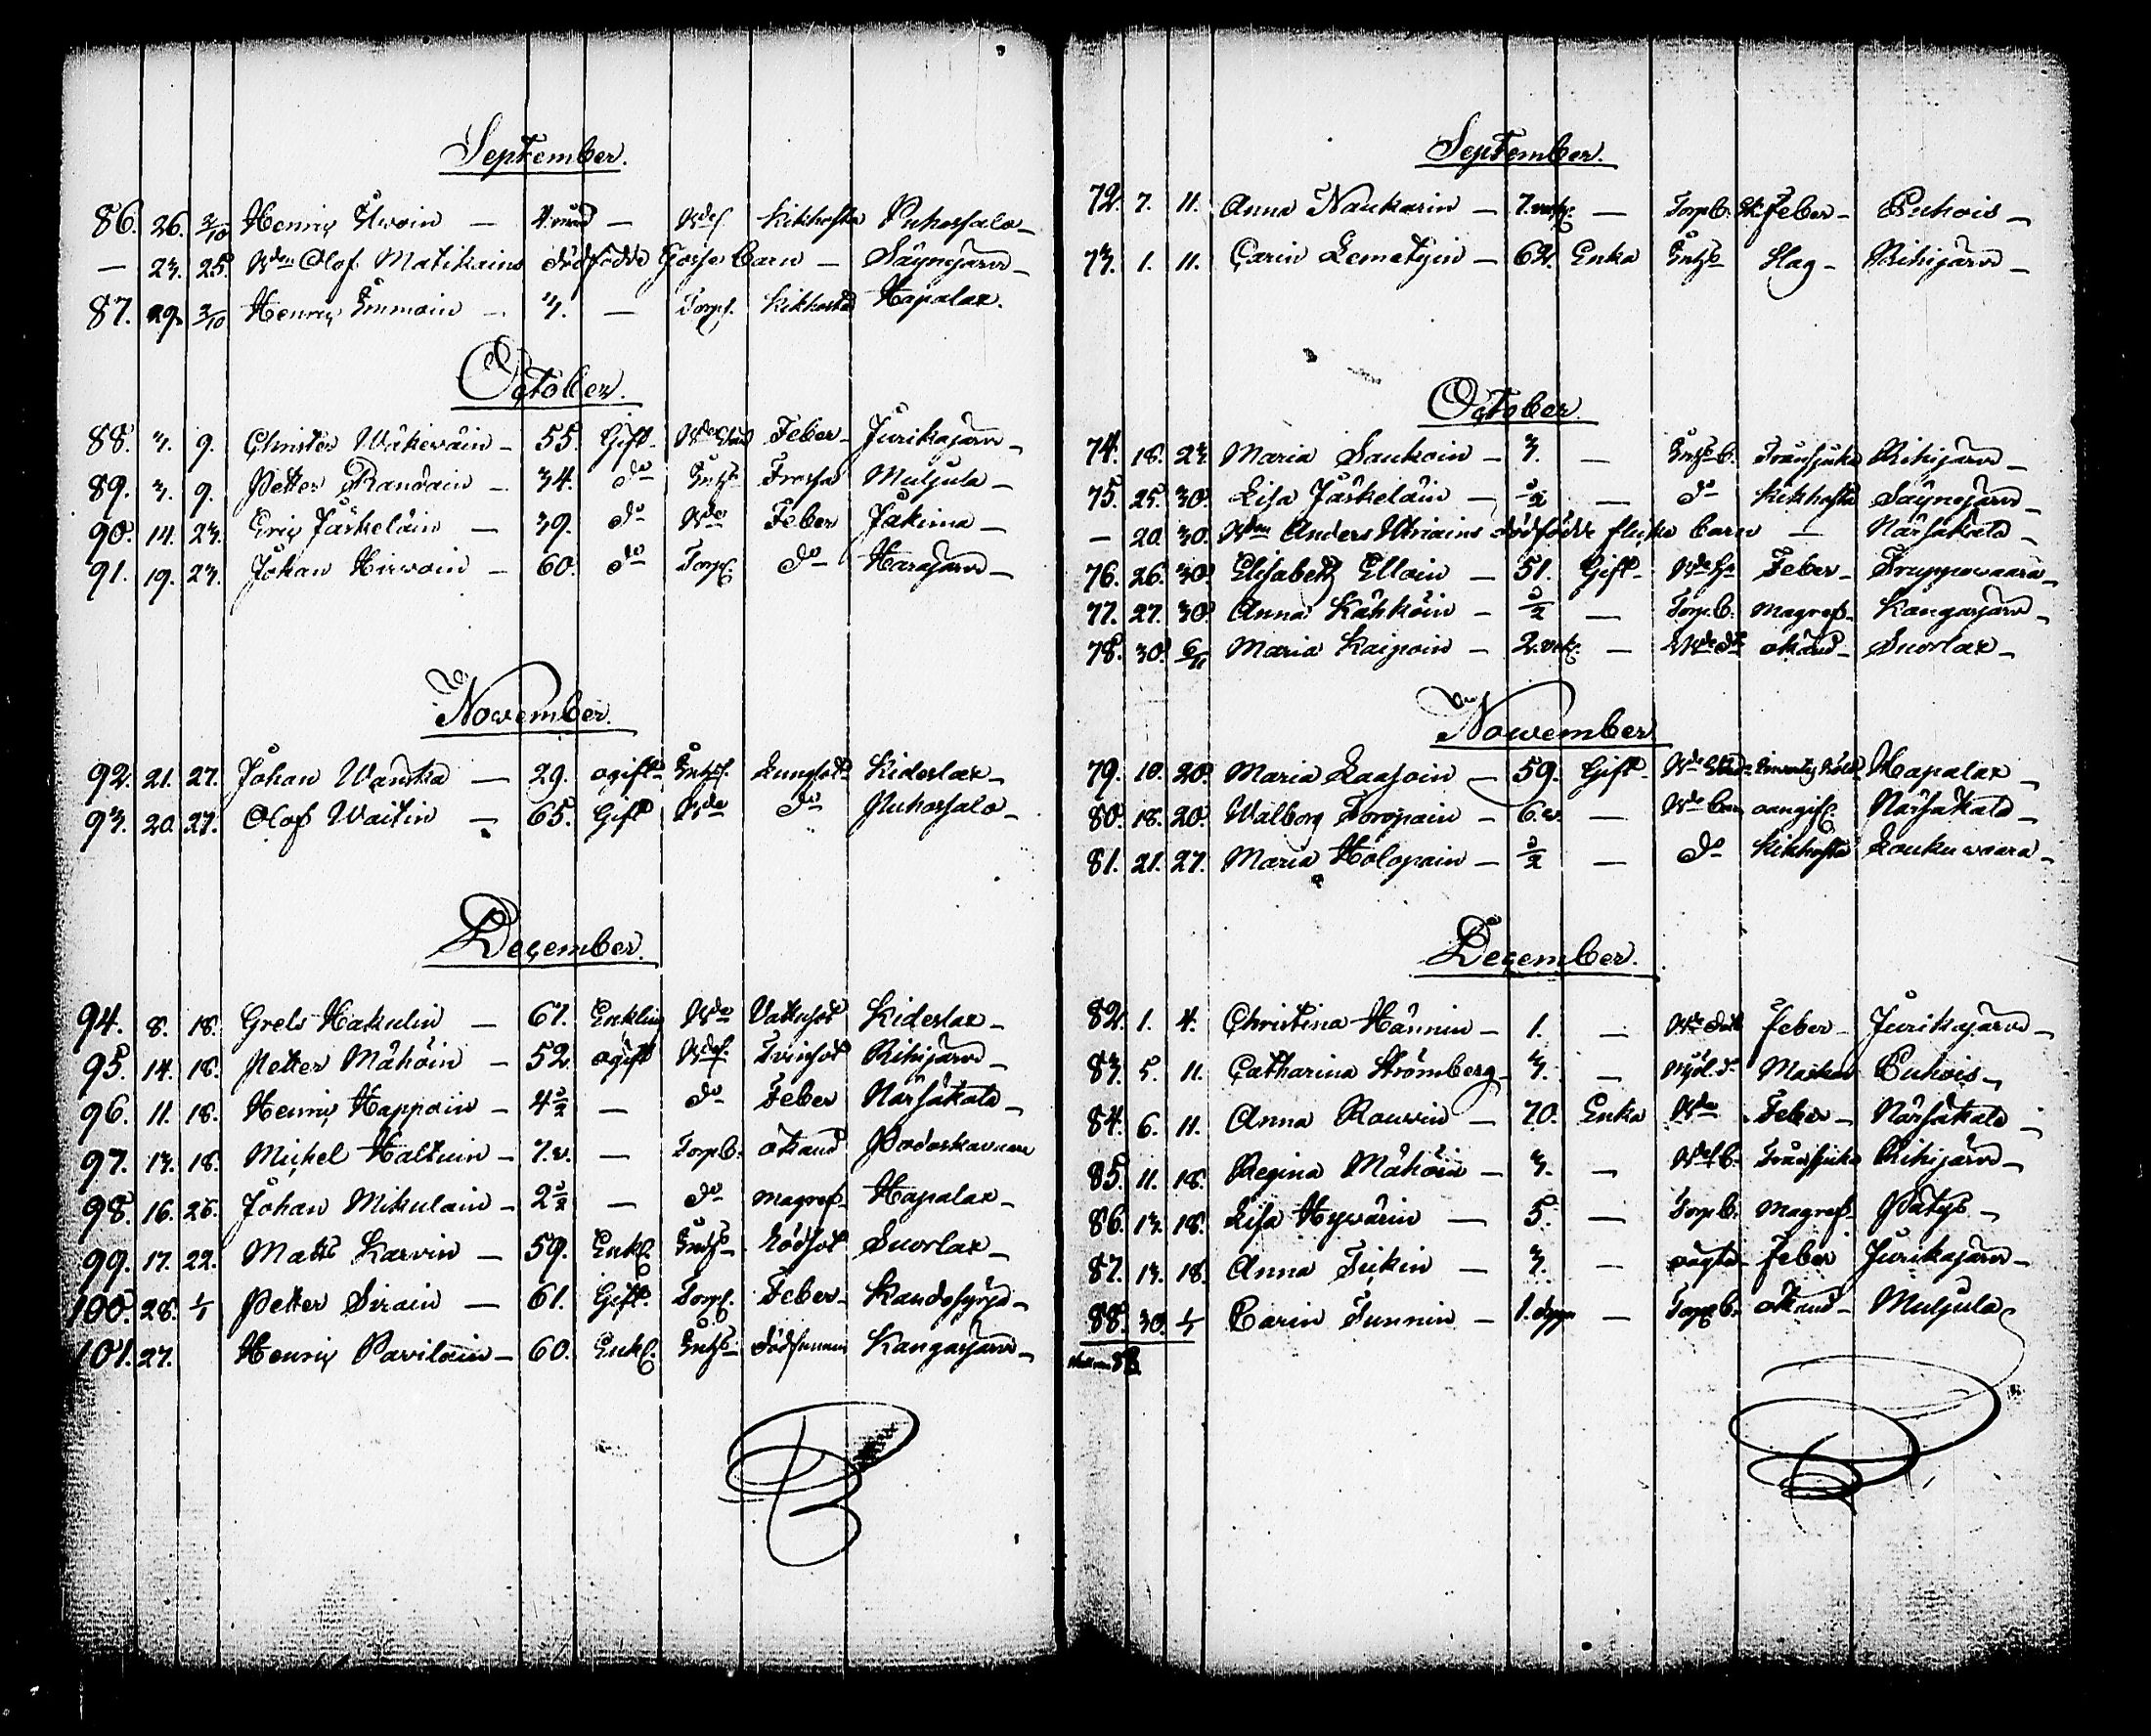 September.
86. 26. 2/10 Henric Ilwoin — 4. månd — Kikhosta Puhossalo —
— 23. 25. Olof Matikains dödfödde Gosse barn — Säynejärvi —
87. 29. 2/10 Henric Immoin — 3. — Torps. Kikhosta Hapalax.
October.
88. 3. 9. Christer Wäkewäin — 55. Gift Feber — Jurikajärvi —
89. 3. 9. Petter Randain — 34. do Inhs Frossa Muljula —
90. 14. 23. Eric Jäskeläin — 39. do Feber Jakima —
91. 19. 23. Johan Hirwoin — 60. do Torp. do Harajärvi —
November.
92. 21. 27. Johan Wanska — 29. ogift Inhs. Lungsot Kideslax —
93. 20. 27. Olof Waitin — 65. Gift do Puhossalo —
December.
94. 8. 18. Grels Hakulin — 67. Enkling Vattusot Kideslax —
95. 14. 18. Petter Mähöin — 52. ogift Tvinsot Rihijärvi —
96. 11. 18. Henric Happoin — 4 1/2 — do Feber Närsäkälä —
97. 13. 18. Michel Haltuin — 7. v. — Torp b. okänd
98. 16. 26. Johan Mikulain — 2 1/2 — do magref. Hapalax —
99. 17. 22. Matts Karvin — 59. Enkl. Inhs Rödsot Suorlax —
100. 28. 1/1 Petter Sirain — 61. Gift. Torp. Feber — Kandosyrjä —
101. 27. Henric Pavilain — 60. Enkl. Inhs Kangasjärvi —
September.
72. 7. 11. Anna Naukarin — 7. — Torp b. Feber — Puhois —
73. 1. 11. Carin Lematyin — 62. Enka Inhs Slag — Rihijärvi —
October.
74. 18. 23. Maria Saukoin — 3. — Inhs b. Rihijärvi —
75. 25. 30. Lisa Jäskeläin — 1/2 — do Kikhosta Säynejärvi —
— 20. 30. Anders Utriains dödfödde flicko barn — Närsäkälä —
76. 26. 30. Elisabeth Elloin — 51. Gift — Feber — Truppowaara —
77. 27. 30. Anna Kähköin — 1/2 — Torp b. Magref — Kangasjärvi —
78. 30. 6/11 Maria Kaipoin — 2. vek. — okänd — Suorlax —
Nowember
79. 10. 20. Maria Laasoin — 59. Gift — Hapalax —
80. 18. 20. Walborg Toropain — 6. v. — oangif. Närsäkälä —
81. 21. 27. Maria Holopain — 1/2 — do Kikhosta Loukuwaara —
December.
82. 1. 4. Christina Hännin — 1. — feber — Jurikajärvi —
83. 5. 11. Catharina Strömberg — 3. — Maskar Puhois —
84. 6. 11. Anna Rouvin — 70. Enka Feber — Närsäkälä —
85. 11. 18. Regina Mähöin — 3. — Rihijärvi —
86. 13. 18. Lisa Hywärin — 5. — Torp b. Magref — Pätys —
87. 13. 18. Anna Tiikin — 3. — feber Jurikajärvi —
88. 30. 1/1 Carin Tunnin — 1. dygn — Torp b. okänd — Muljula
88.